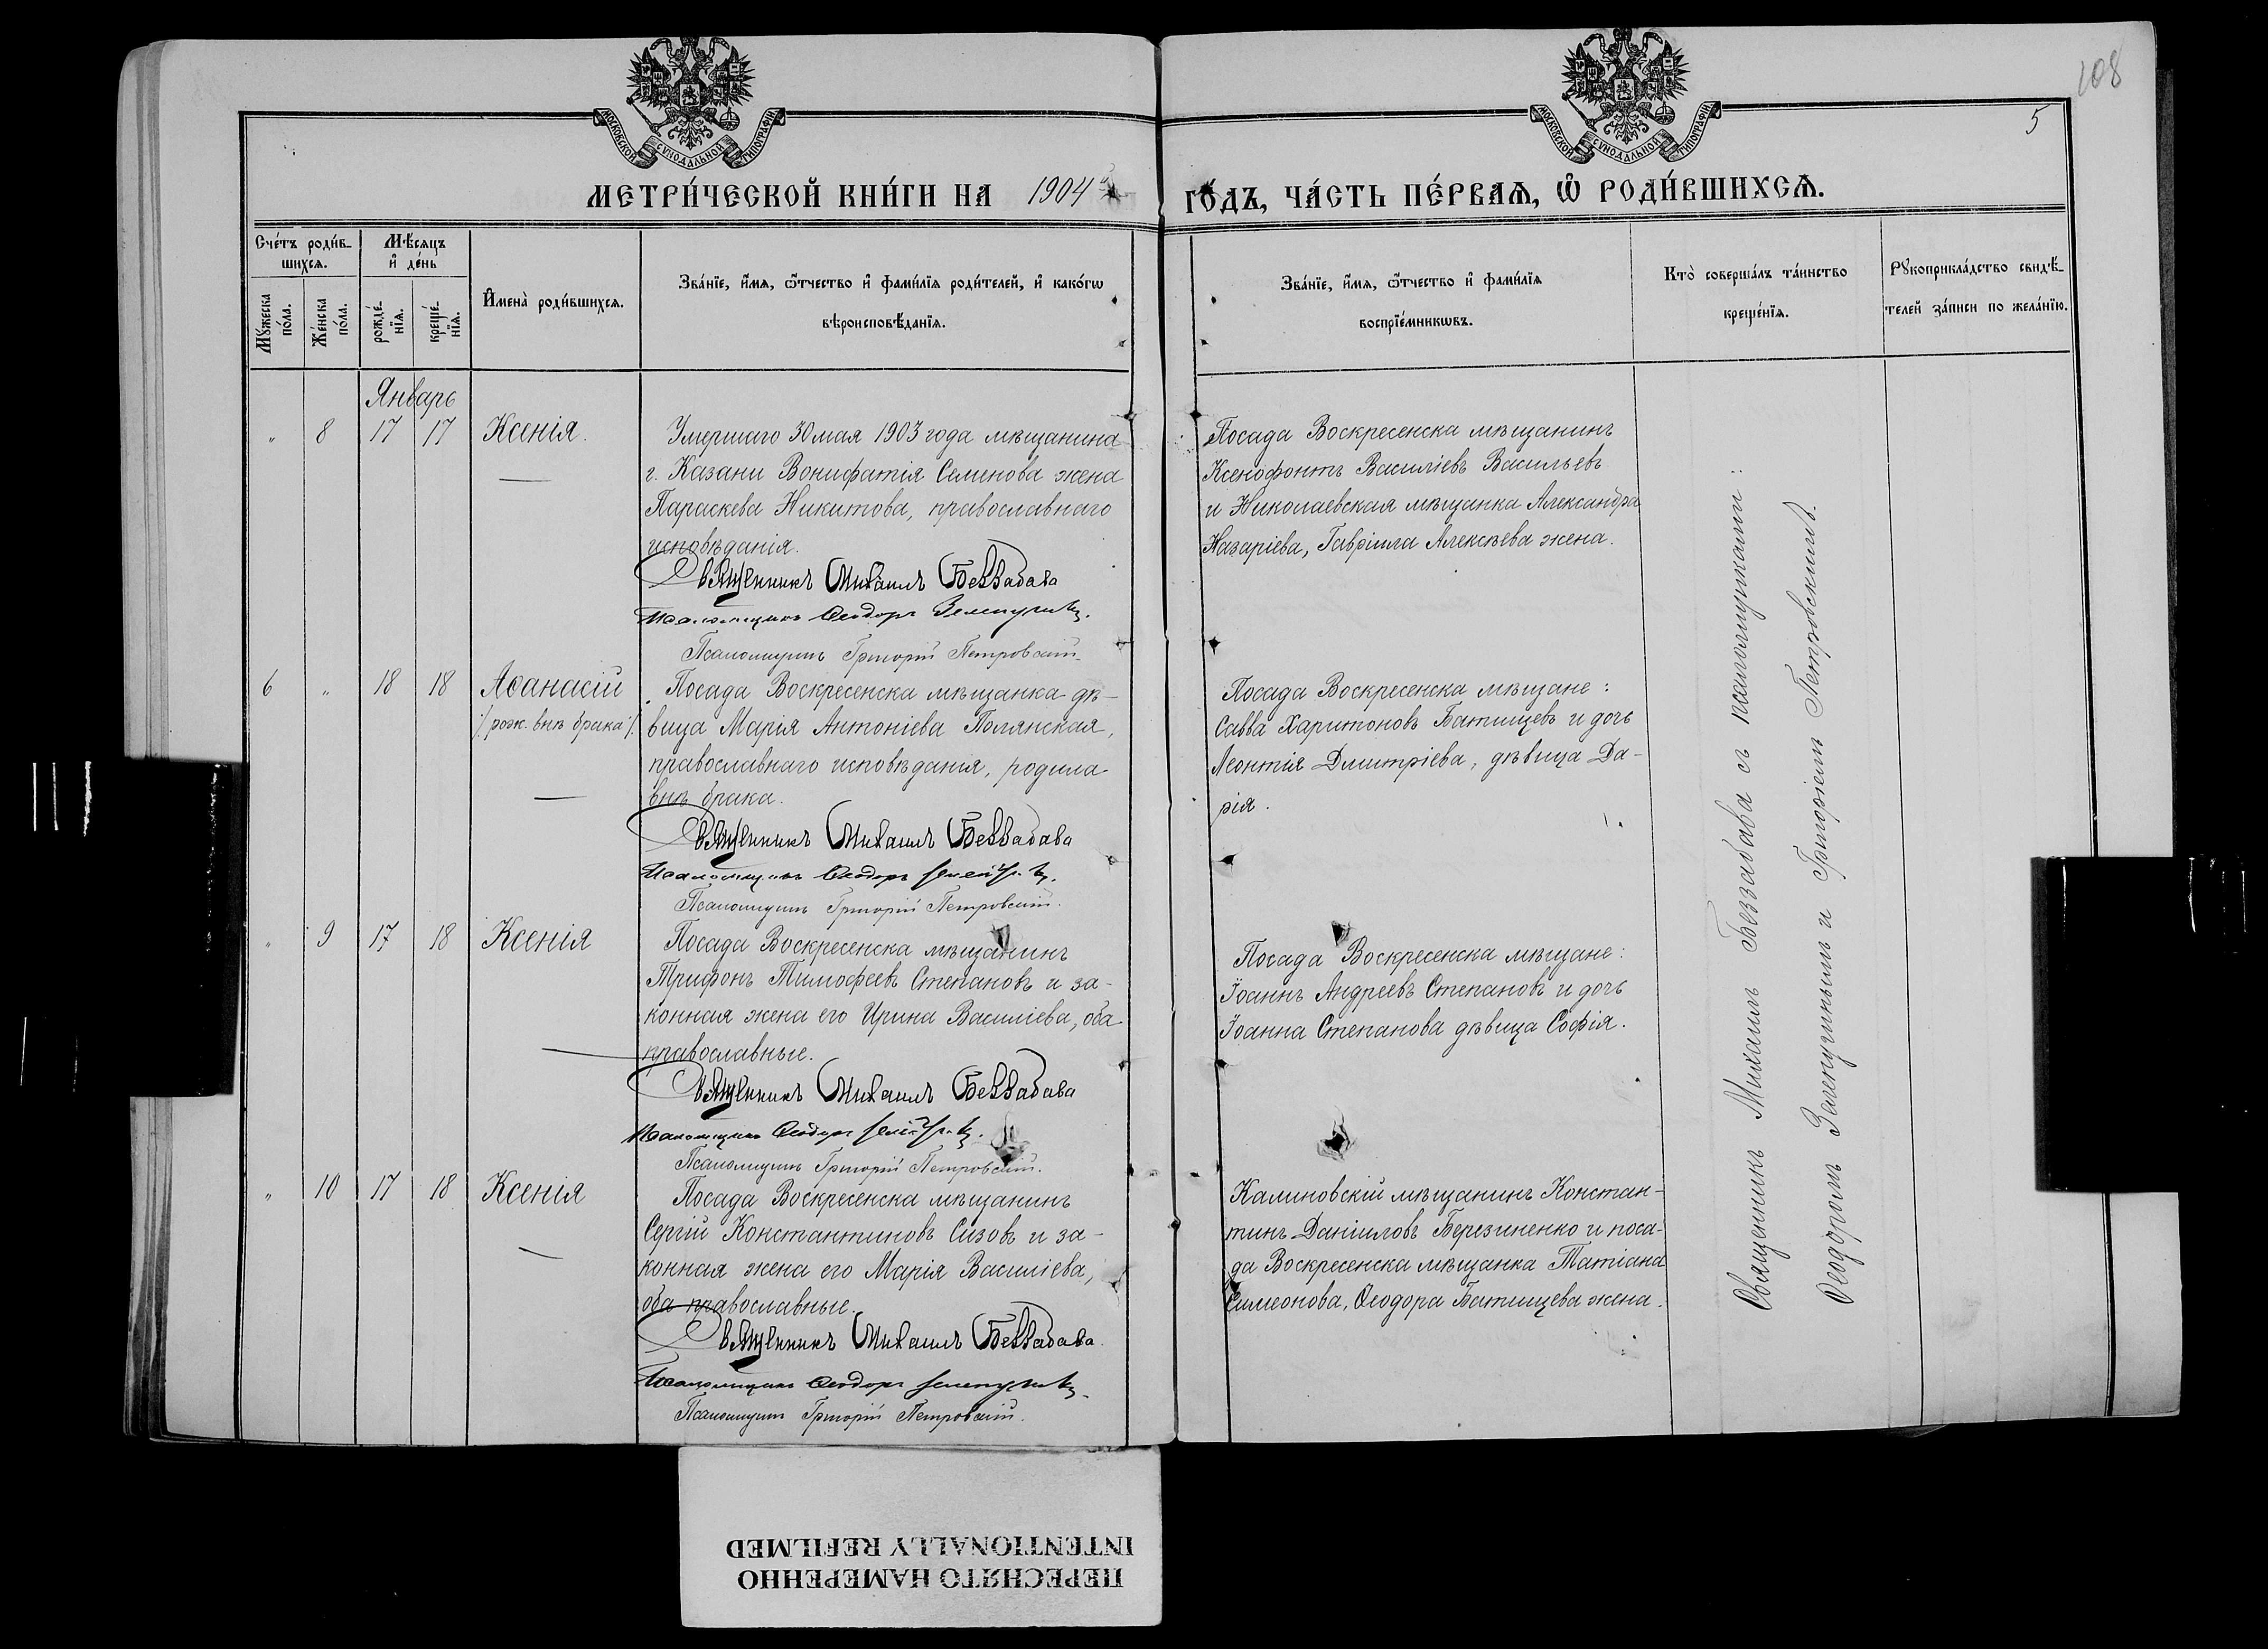 108
5
МОСКОВСКОЙ СѴНОДАЛЬНОЙ ТИПОГРАФІИ
МОСКОВСКОЙ СѴНОДАЛЬНОЙ ТИПОГРАФІИ
МЕТРИ́ЧЕСКОЙ КНИ́ГИ НА 1904й ГО́ДЪ, ЧА́СТЬ ПЕ́РВАѦ, Ѡ҆ РОДИ́ВШИХСѦ.
Сче́тъ роди́в-
шихсѧ.
Мꙋжеска
по́ла.
Же́нска
по́ла.
Мѣ́сѧцъ
и҆ де́нь
рожде́-
нїѧ.
креще́-
нїѧ.
И҆мена̀ роди́вшихсѧ.
Зва́нїе, и҆́мѧ, ѻ҆́тчество и҆ фами́лїѧ роди́телей, и҆ како́гѡ
вѣроисповѣ́данїѧ.
Зва́нїе, и҆́мѧ, ѻ҆́тчество и҆ фами́лїѧ
воспрїе́мникѡвъ.
Кто̀ соверша́лъ та́инство
креще́нїѧ.
Рꙋкоприкла́дство свидѣ́-
телей за́писи по жела́нїю.
Январь
" 8 17 17 Ксенія.
Умершаго 30 мая 1903 года мѣщанина
г. Казани Вонифатія Семенова жена
Параскева Никитова, православнаго
исповѣданія.
Священникъ Михаилъ Беззабава
Псаломщикъ Ѳеодоръ Зеленугинъ.
Псаломщикъ Григорій Петровскій.
Посада Воскресенска мѣщанинъ
Ксенофонтъ Василіевъ Васильевъ
и Николаевская мѣщанка Александра
Назаріева, Гавріила Алексѣева жена.
6 " 18 18 Аѳанасій
/: рож. внѣ брака :/
Посада Воскресенска мѣщанка дѣ-
вица Марія Антоніева Полянская,
православнаго исповѣданія, родила
внѣ брака.
Священникъ Михаилъ Беззабава
Псаломщикъ Ѳеодоръ
Псаломщикъ Григорій Петровскій.
Посада Воскресенска мѣщане:
Савва Харитоновъ Батищевъ и дочь
Леонтія Димитріева, дѣвица Да-
рія.
" 9 17 18 Ксенія
Посада Воскресенска мѣщанинъ
Трифонъ Тимофеевъ Степановъ и за-
конная жена его Ирина Василіева, оба
православные.
Священникъ Михаилъ Беззабава
Псаломщикъ Ѳеодоръ
Псаломщикъ Григорій Петровскій.
Посада Воскресенска мѣщане:
Іоаннъ Андреевъ Степановъ и дочь
Іоанна Степанова дѣвица Софія.
" 10 17 18 Ксенія
Посада Воскресенска мѣщанинъ
Сергій Константиновъ Сизовъ и за-
конная жена его Марія Василіева,
оба православные.
Священникъ Михаилъ Беззабава.
Псаломщикъ Ѳеодоръ
Псаломщикъ Григорій Петровскій.
Калиновскій мѣщанинъ Констан-
тинъ Даніиловъ Березиненко и поса-
да Воскресенска мѣщанка Татіана
Симеонова, Ѳеодора Батищева жена.
Священникъ Михаилъ Беззабава съ псаломщиками:
Ѳеодоромъ и Григоріемъ Петровскимъ.
ПЕРЕСНЯТО НАМЕРЕННО
INTENTIONALLY REFILMED